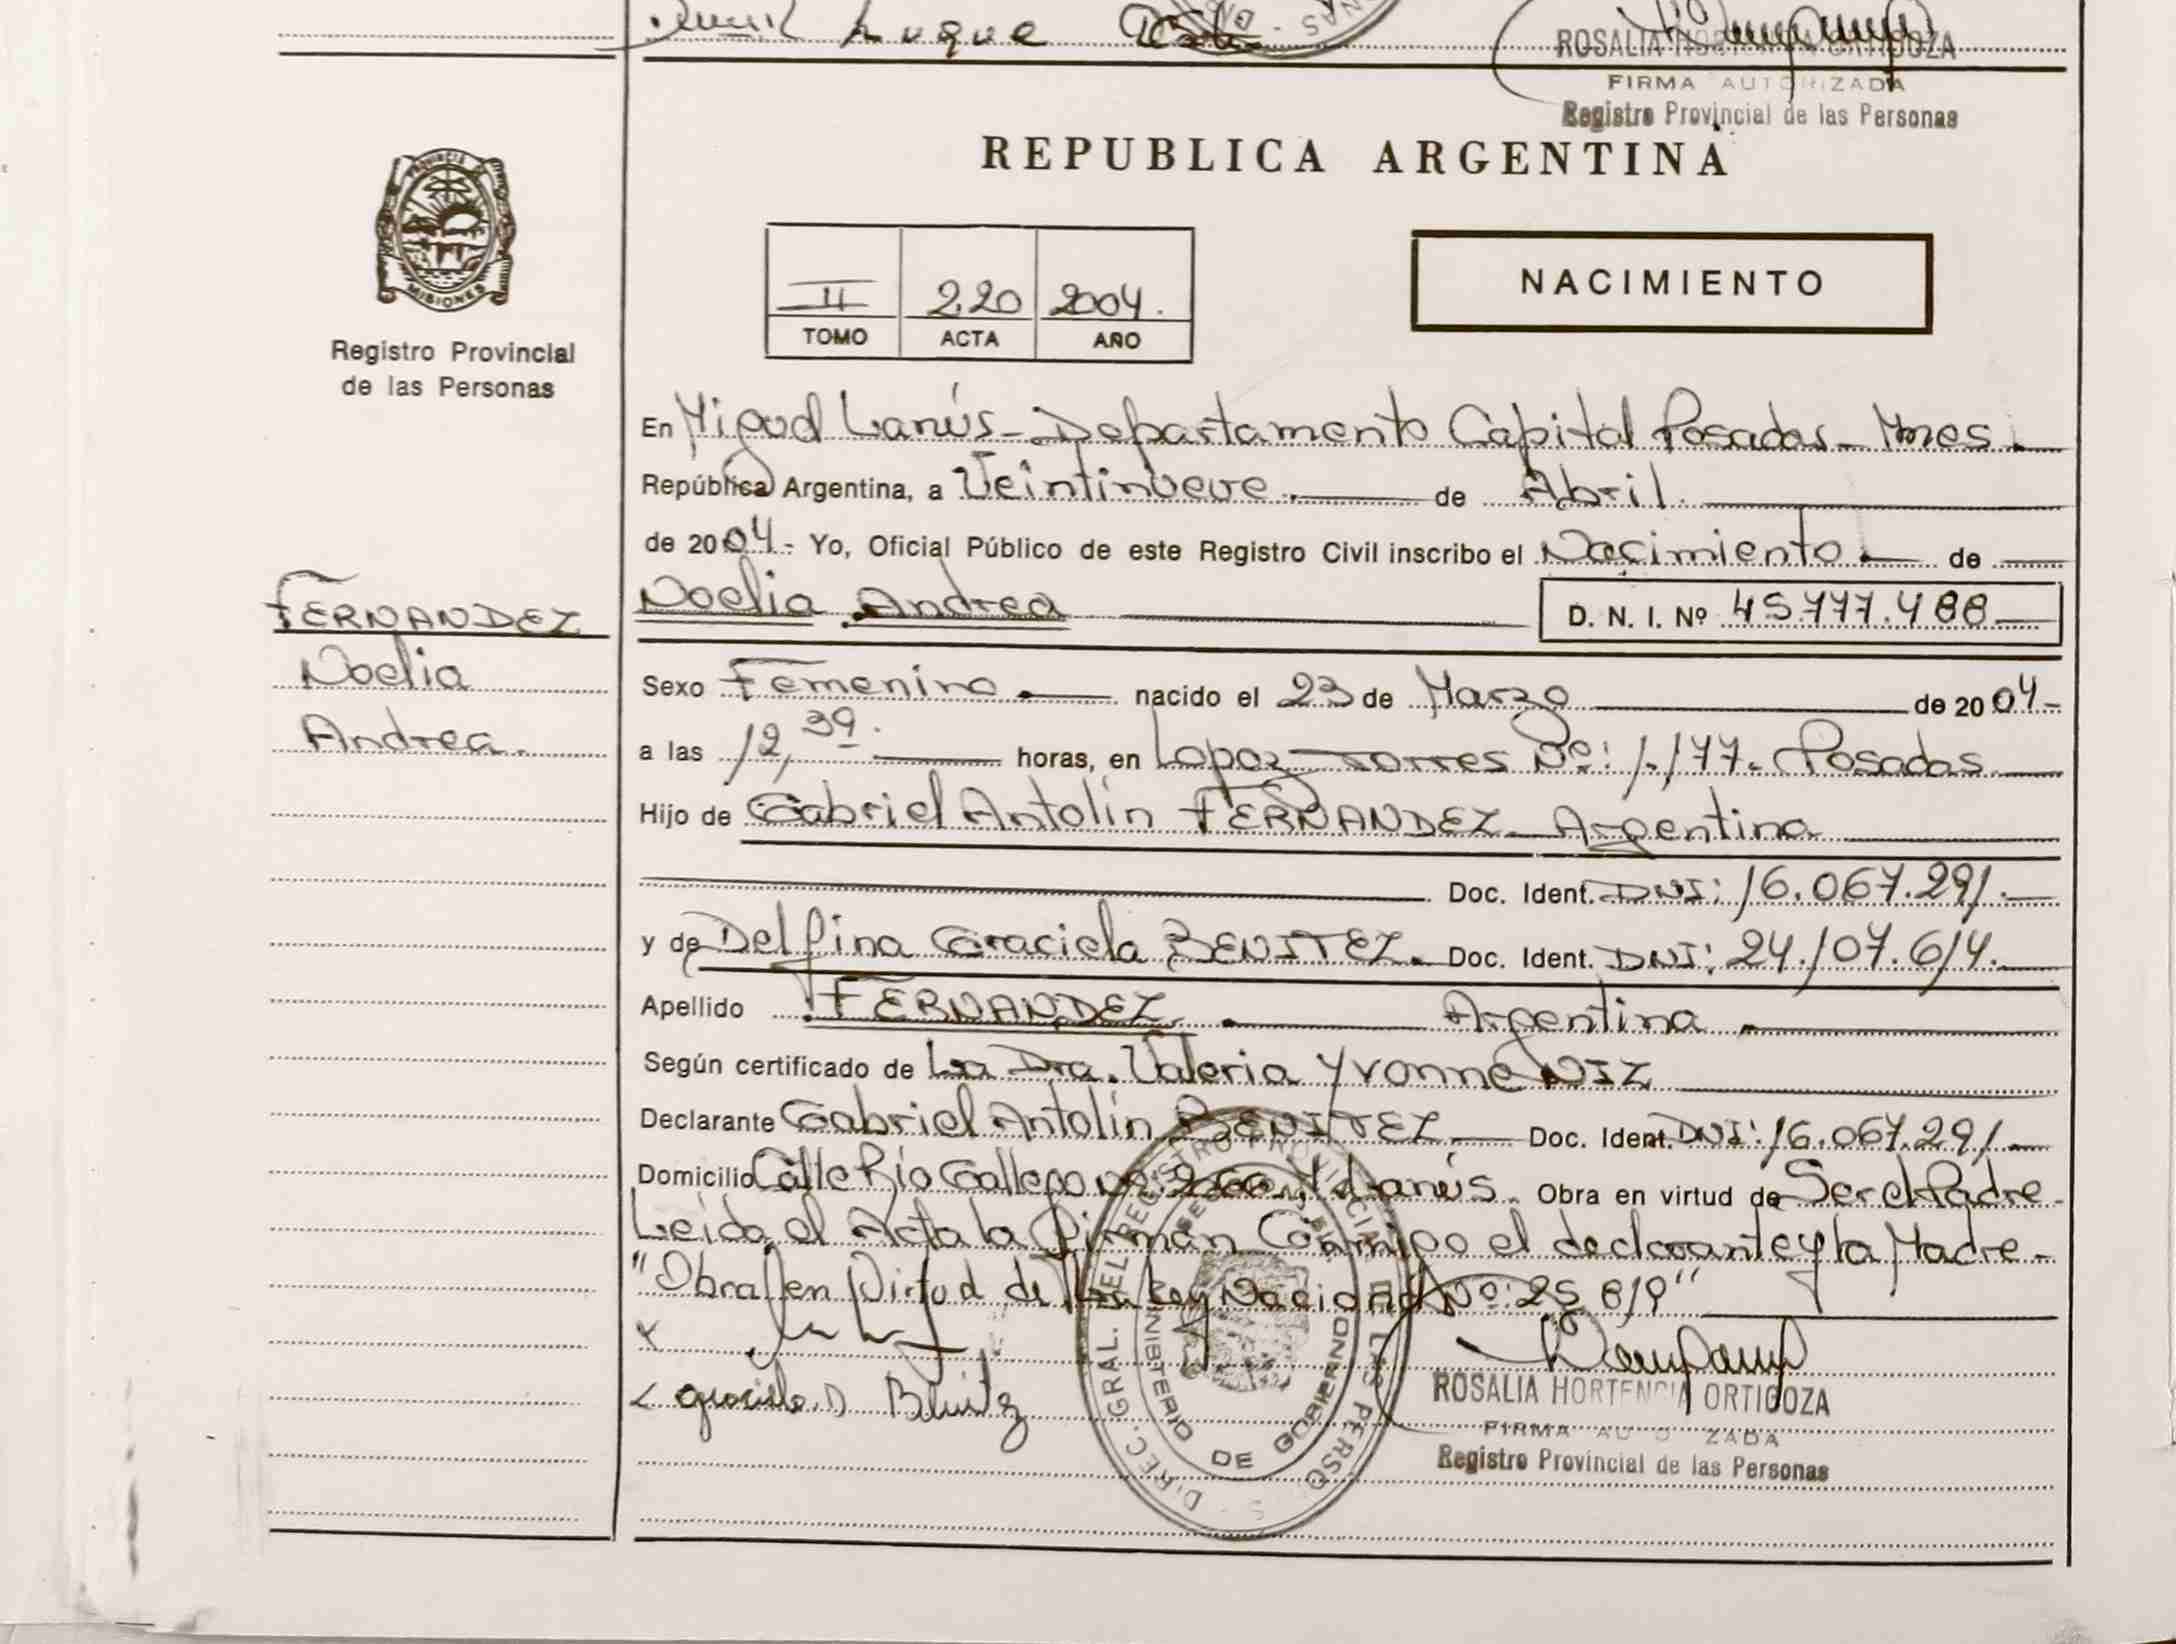 Luque
ROSALIA HORTENCIA ORTIGOZA
FIRMA AUTORIZADA
Registro Provincial de las Personas
REPUBLICA ARGENTINA
PROVINCIA
MISIONES
Registro Provincial
de las Personas
II 220 2004.
TOMO ACTA AÑO
NACIMIENTO
En Miguel Lanús - Departamento Capital Posadas - Mnes.
República Argentina, a Veintinueve de Abril.
de 2004.- Yo, Oficial Público de este Registro Civil inscribo el Nacimiento de
Noelia Andrea D. N. I. Nº 45.777.488
FERNANDEZ
Noelia
Andrea.
Sexo Femenino nacido el 23 de Marzo de 2004-
a las 12,39. horas, en Lopez Torres Nº: 1.177. Posadas
Hijo de Gabriel Antolín FERNANDEZ - Argentina
Doc. Ident. DNI: 16.067.291.
y de Delfina Graciela BENITEZ. Doc. Ident. DNI: 24.107.614.
Apellido FERNANDEZ. Argentina.
Según certificado de La Dra. Valeria Yvonne NIZ
Declarante Gabriel Antolín BENITEZ Doc. Ident. DNI: 16.067.291
Domicilio Calle Río Gallego Lanús. Obra en virtud de Ser el Padre.
Leída el Acta la Firman Conmigo el declarante y la Madre-
"Obra en Virtud de la Ley Nacional Nº: 25.819"
Graciela D Benitez
ROSALIA HORTENCIA ORTIGOZA
FIRMA AUTORIZADA
Registro Provincial de las Personas
DIREC. GRAL. DEL REGISTRO PROVINCIAL DE LAS PERSONAS
MINISTERIO DE GOBIERNO